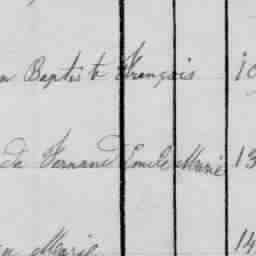 n Baptiste François 10
de Fernand Emile Marie 13
n Marie 14